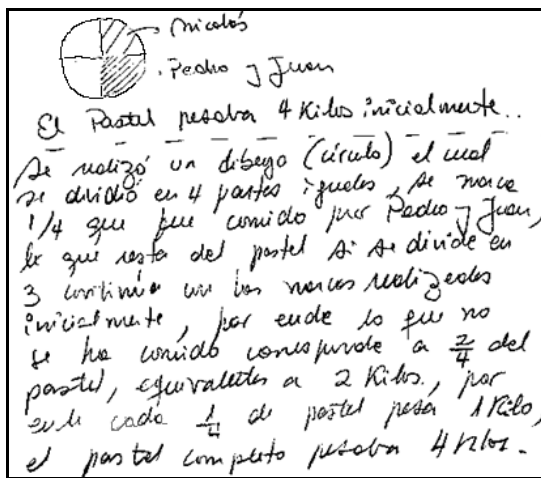 Nicolás
Pedro y Juan
El Pastel pesaba 4 Kilos inicialmente..
Se realizó un dibujo (círculo) el cual
se dividió en 4 partes iguales, se marca
1/4 que fue comido por Pedro y Juan,
lo que resta del pastel si se divide en
3 continúa con las marcas realizadas
inicialmente, por ende lo que no
se ha comido corresponde a 2/4 del
pastel, equivalentes a 2 Kilos., por
ende cada 1/4 de pastel pesa 1 Kilo,
el pastel completo pesaba 4 kilos.